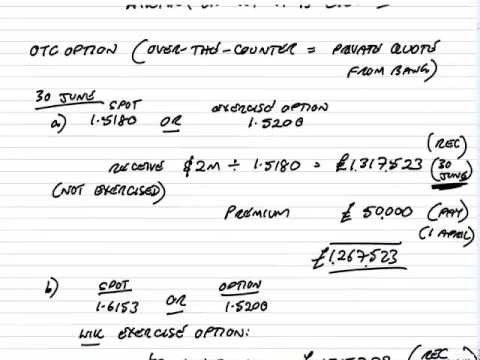 OTC OPTION (OVER-THE-COUNTER = PRIVATE QUOTE
FROM BANK)
30 JUNE
SPOT EXERCISE OPTION
a) 1.5180 OR 1.5200
RECEIVE $2M ÷ 1.5180 = £1,317,523 (REC)
(30 JUNE)
(NOT EXERCISED)
PREMIUM £ 50,000 (PAY)
(1 APRIL)
£1,267,523
b) SPOT OPTION
1.6153 OR 1.5200
WILL EXERCISE OPTION:
(REC